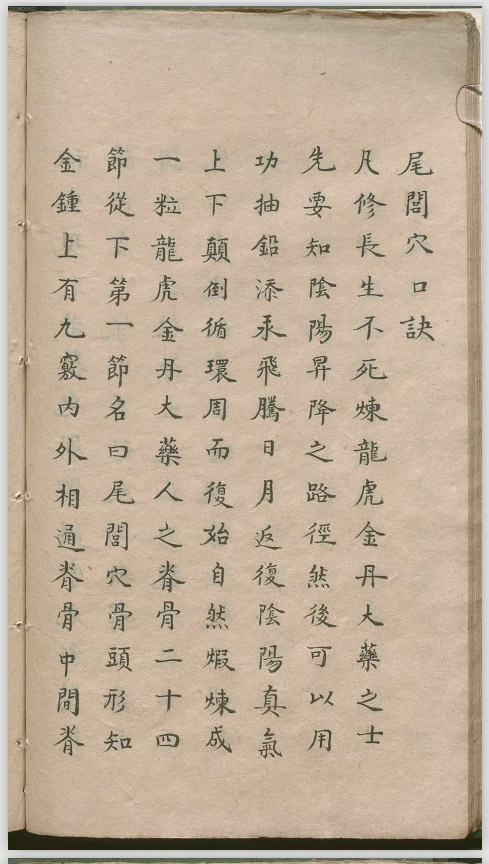 尾閭穴口訣
凡修長生不死煉龍虎金丹大藥之士
先要知陰陽昇降之路徑然後可以用
功抽鉛添汞飛騰日月返復陰陽真氣
上下顛倒循環周而復始自然煅煉成
一粒龍虎金丹大藥人之脊骨二十四
節從下第一節名曰尾閭穴骨頭形如
金鍾上有九竅内外相通脊骨中間脊